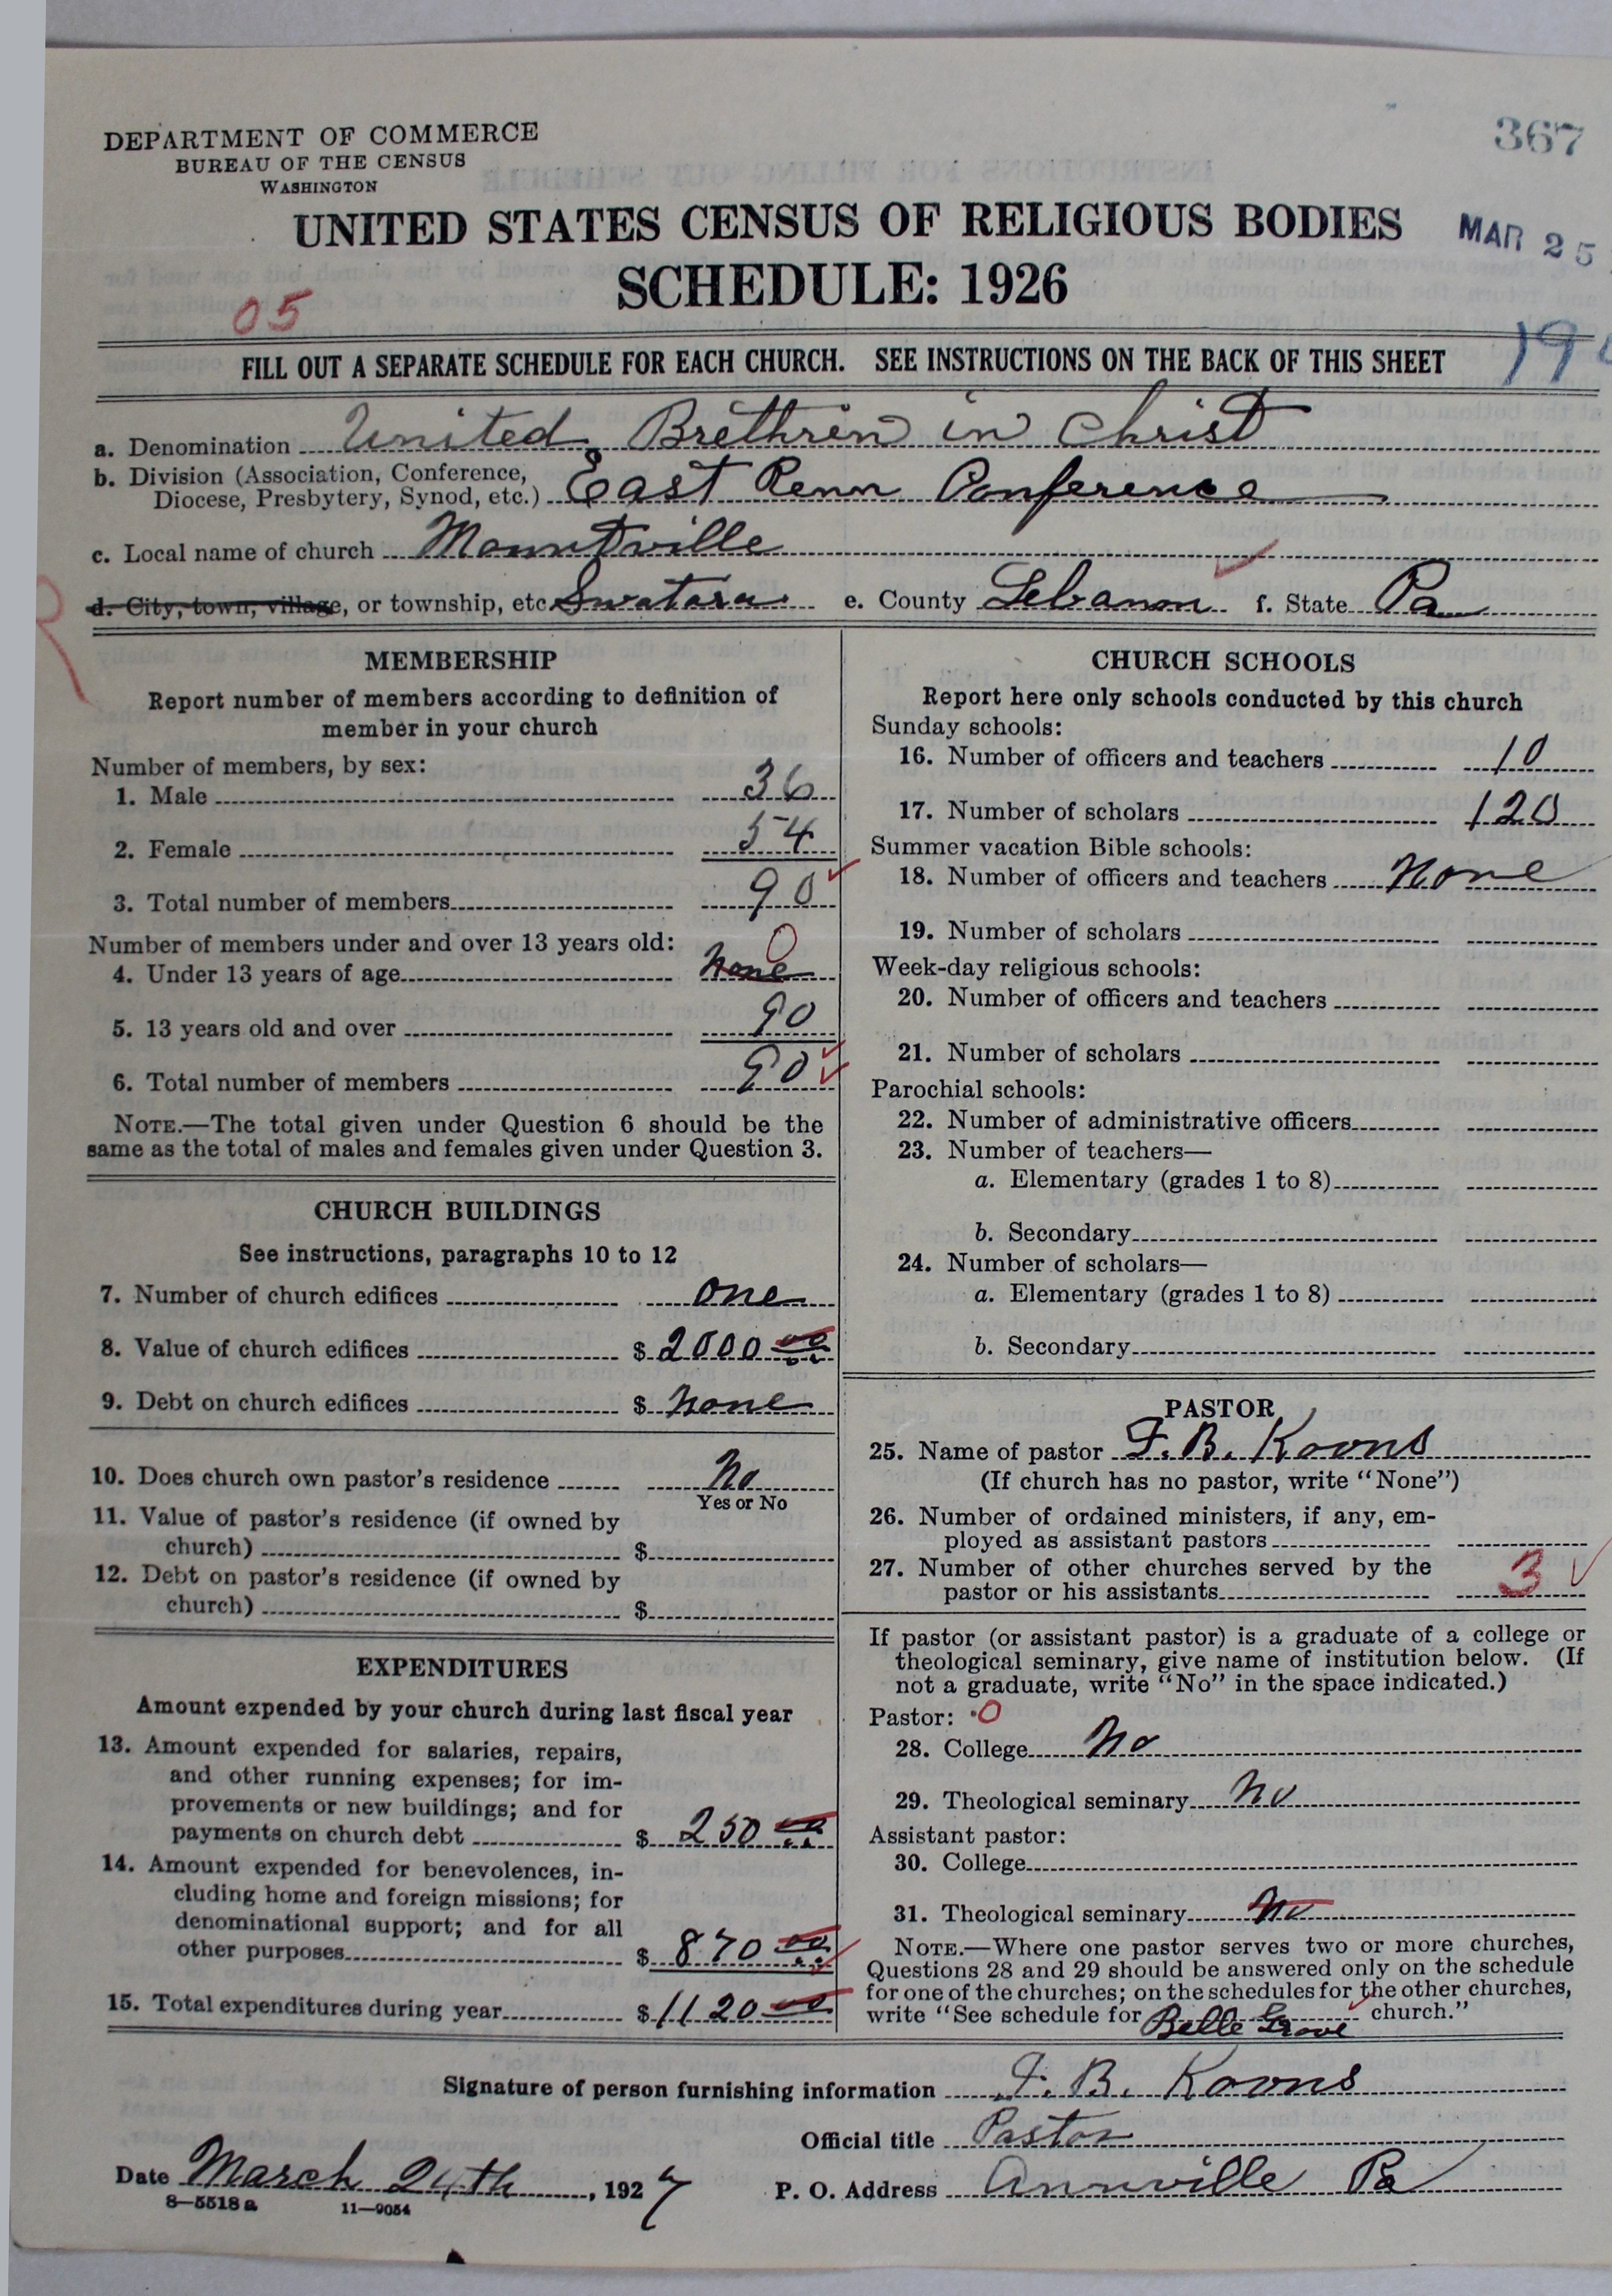 367
DEPARTMENT OF COMMERCE
BUREAU OF THE CENSUS
WASHINGTON
UNITED STATES CENSUS OF RELIGIOUS BODIES
MAR 25
SCHEDULE: 1926
05
FILL OUT A SEPARATE SCHEDULE FOR EACH CHURCH. SEE INSTRUCTIONS ON THE BACK OF THIS SHEET
a. Denomination United Brethren in Christ
b. Division (Association, Conference,
Diocese, Presbytery, Synod, etc.) East Penn Conference
c. Local name of church Mountville
d. City, town, village, or township, etc. Swatara e. County Lebanon f. State Pa
R
MEMBERSHIP
Report number of members according to definition of
member in your church
Number of members, by sex:
1. Male 36
2. Female 54
3. Total number of members 90
Number of members under and over 13 years old:
4. Under 13 years of age none 0
5. 13 years old and over 90
6. Total number of members 90
NOTE.—The total given under Question 6 should be the
same as the total of males and females given under Question 3.
CHURCH BUILDINGS
See instructions, paragraphs 10 to 12
7. Number of church edifices one
8. Value of church edifices $ 2000 00
9. Debt on church edifices $ none
10. Does church own pastor's residence No
Yes or No
11. Value of pastor's residence (if owned by
church) $
12. Debt on pastor's residence (if owned by
church) $
EXPENDITURES
Amount expended by your church during last fiscal year
13. Amount expended for salaries, repairs,
and other running expenses; for im-
provements or new buildings; and for
payments on church debt $ 250 00
14. Amount expended for benevolences, in-
cluding home and foreign missions; for
denominational support; and for all
other purposes $ 870 00
15. Total expenditures during year $ 1120 00
CHURCH SCHOOLS
Report here only schools conducted by this church
Sunday schools:
16. Number of officers and teachers 10
17. Number of scholars 120
Summer vacation Bible schools:
18. Number of officers and teachers None
19. Number of scholars
Week-day religious schools:
20. Number of officers and teachers
21. Number of scholars
Parochial schools:
22. Number of administrative officers
23. Number of teachers—
a. Elementary (grades 1 to 8)
b. Secondary
24. Number of scholars—
a. Elementary (grades 1 to 8)
b. Secondary
PASTOR
25. Name of pastor F. B. Koons
(If church has no pastor, write "None")
26. Number of ordained ministers, if any, em-
ployed as assistant pastors
27. Number of other churches served by the
pastor or his assistants 3
If pastor (or assistant pastor) is a graduate of a college or
theological seminary, give name of institution below. (If
not a graduate, write "No" in the space indicated.)
Pastor: 0
28. College No
29. Theological seminary No
Assistant pastor:
30. College
31. Theological seminary No
NOTE.—Where one pastor serves two or more churches,
Questions 28 and 29 should be answered only on the schedule
for one of the churches; on the schedules for the other churches,
write "See schedule for Belle Grove church."
Signature of person furnishing information F. B. Koons
Official title Pastor
Date March 24th, 1927
P. O. Address Annville Pa
8—5518 a 11—9054